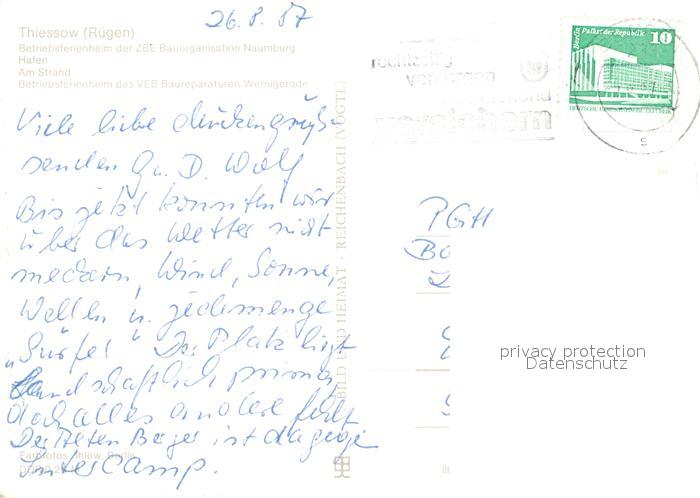 26.8.87
Thiessow (Rügen)
Betriebsferienheim der ZBE Bauorganisation Naumburg
Hafen
Am Strand
Betriebsferienheim des VEB Baureparaturen Wernigerode
Viele liebe
senden D. Wolf
Bis jetzt konnten wir
über das Wetter nicht
meckern, Wind, Sonne,
Wellen u. jedemenge
„Surfer" Der Platz liegt
landschaftlich prima,
doch alles andere fehlt
Der Alten Berger ist dagegen
Intercamp.
Farbfotos: Ihlow, Berlin
BILD UND HEIMAT · REICHENBACH (VOGTL)
rechtzeitig
vorsorgen
versichern
Berlin Palast der Republik
10
PGH
privacy protection
Datenschutz